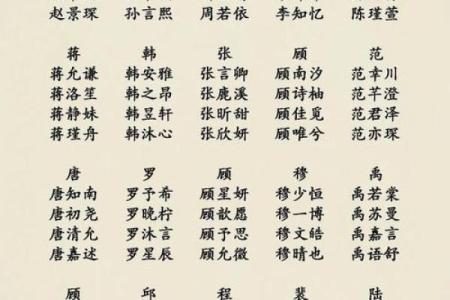 赵景琛 孙言熙 周若依 李知忆 陈瑾萱
蒋 韩 张 顾 范
蒋允谦 韩安雅 张言卿 顾南汐 范幸川
蒋洛笙 韩之昂 张鹿溪 顾诗柚 范芊澄
蒋静姝 韩昱轩 张昕甜 顾佳觅 范君泽
蒋瑾舟 韩沐心 张欣妍 顾唯兮 范亦琛
唐 罗 顾 穆 禹
唐知南 罗予希 顾星妍 穆少恒 禹若棠
唐初尧 罗晚柠 顾歆愿 穆一博 禹苏曼
唐清允 罗沐言 顾予思 穆文皓 禹嘉言
唐嘉述 罗星辰 顾允徵 穆晴也 禹语舒
顾 邱 程 裴 陆